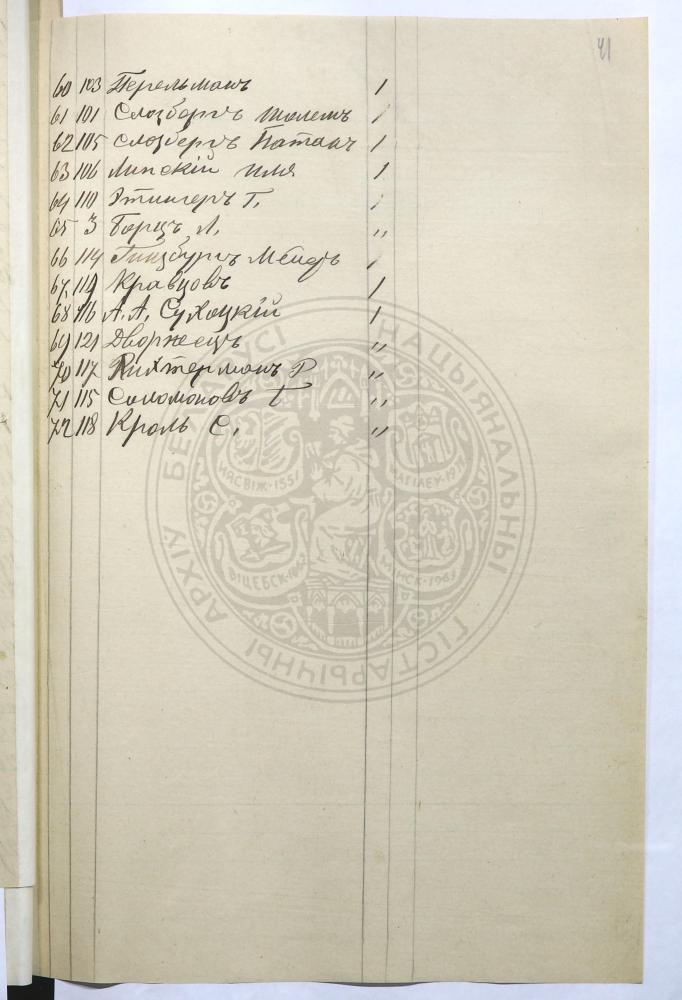 41
60 103 Перельманъ 1
61 101 Слозбергъ Шолемъ 1
62 105 Слозбергъ Натанъ 1
63 106 Липскій Илья 1
64 110 Этингеръ Г. 1
65 3 Борцъ Л. "
66 114 Гинзбургъ 1
67 119 Кравцовъ 1
68 116 А. А. Сухоцкій 1
69 121 Дворжецъ "
70 117 Рихтерманъ Р "
71 115 Соломоновъ Г "
72 118 Кроль С. "
НАЦЫЯНАЛЬНЫ ГІСТАРЫЧНЫ АРХІЎ БЕЛАРУСІ
НЯСВІЖ-1551
МАГІЛЕЎ
ВІЦЕБСК
МІНСК